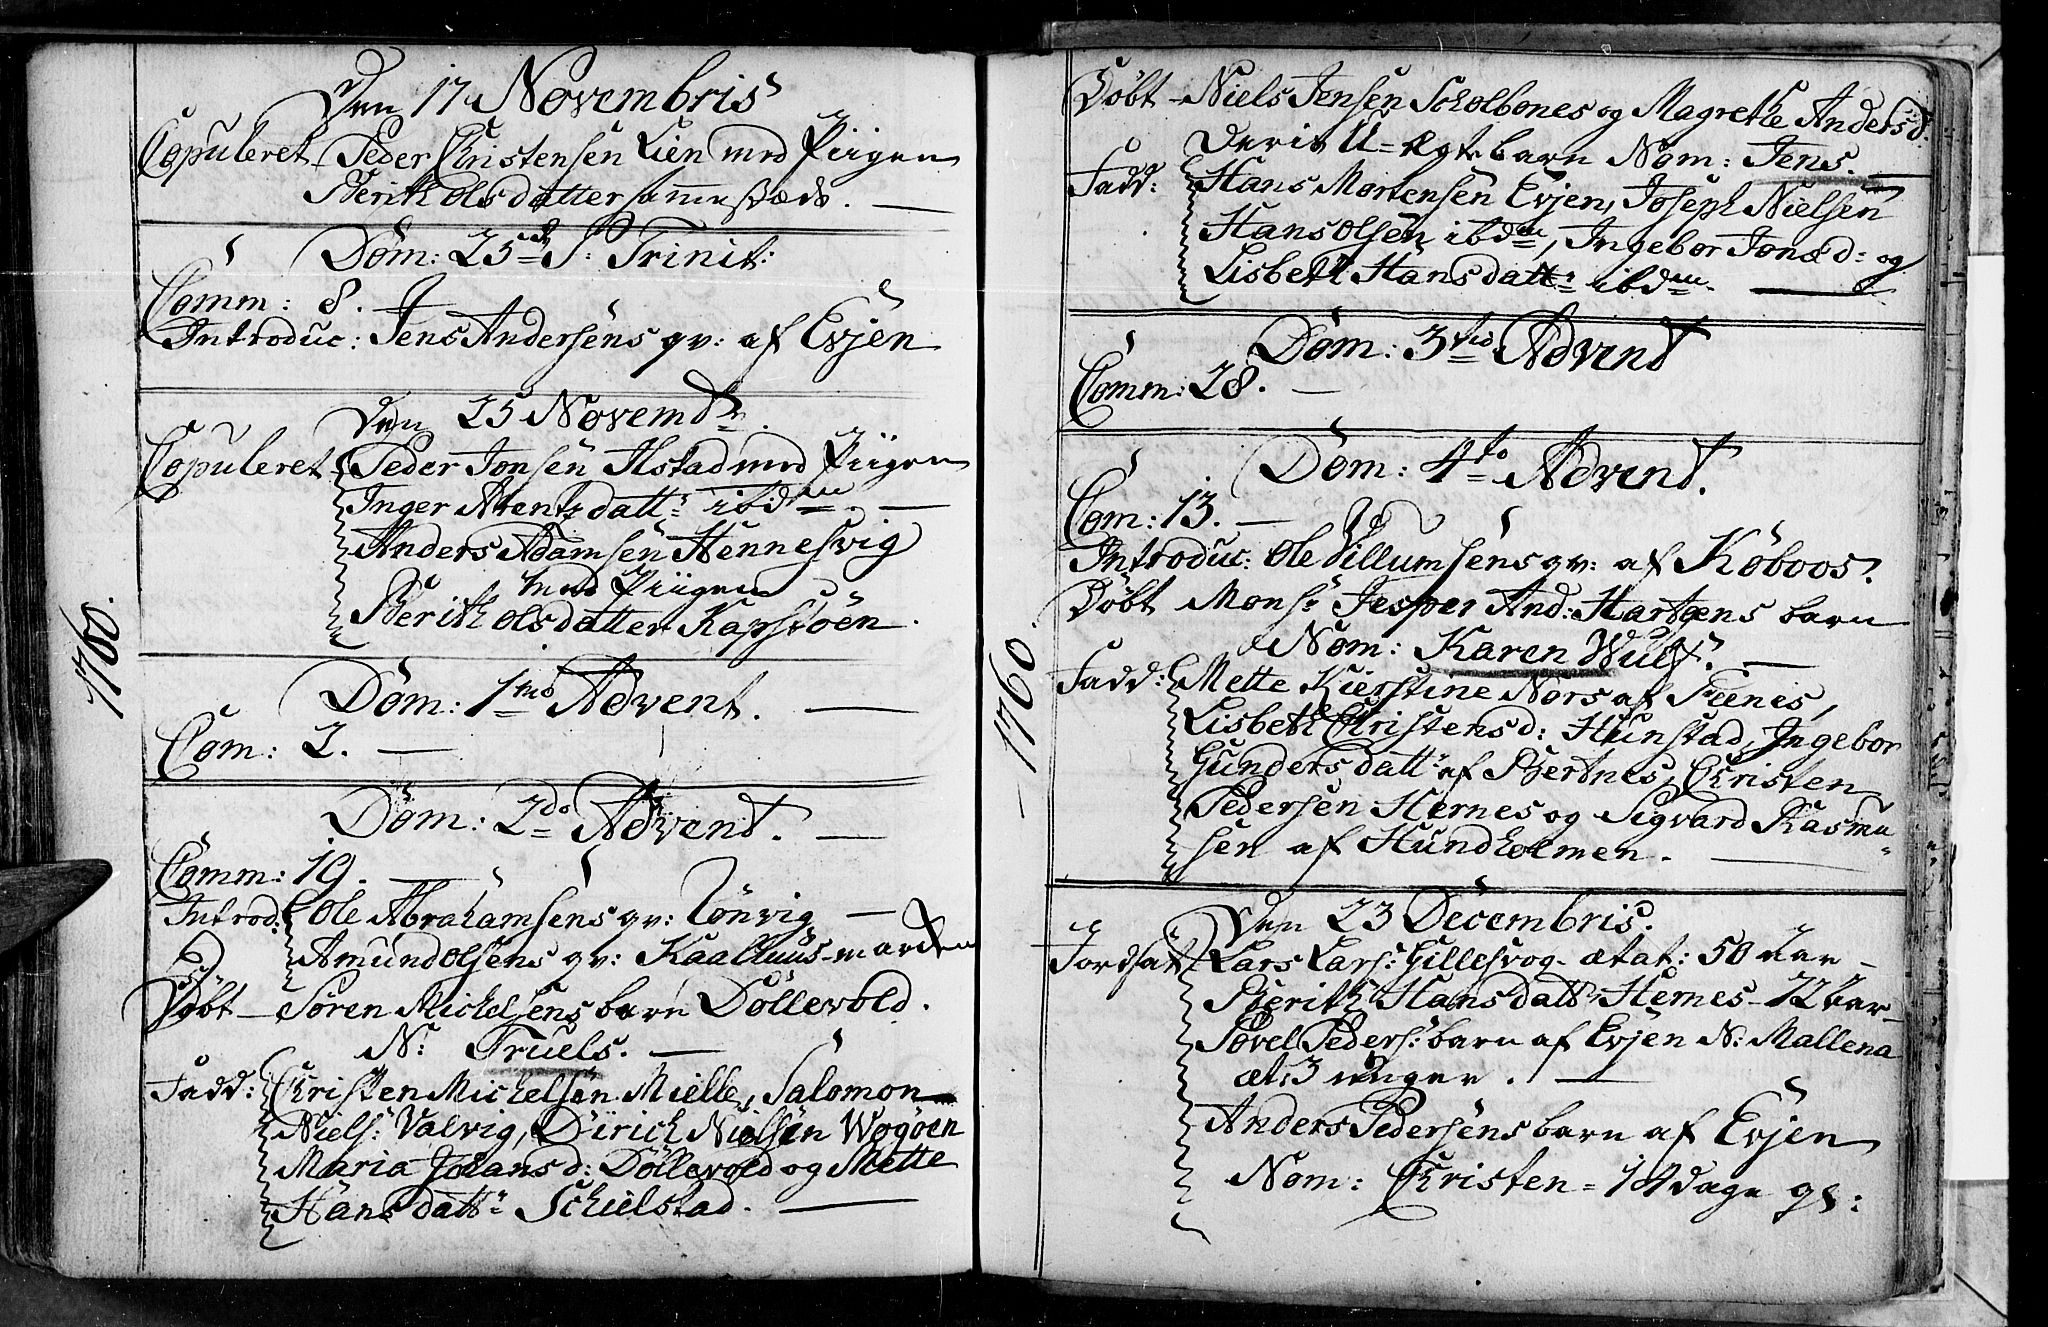 1760.
Den 17 Novembris
Copuleret Peder Christensen Lien med Piigen
Berith Olsdatter sammestæds. —
Dom: 25de S: Trinit:
Comm: 8.
Introduc: Jens Andersens qv: af Evjen
Den 25 Novembr.
Copuleret Peder Jonsen Ilstad med Piigen
Inger Arentzdatt: ibdem. —
Anders Adamsen Hennesvig
med Piigen
Berith Olsdatter Kapsøen.
Dom: 1mo Advent. —
Com: 2. —
Dom: 2do Advent. —
Comm: 19. —
Introd: Ole Abrahamsens qv: Lönvig —
Amund Olsens qv: Kaalhuus-marken
Döbt — Sören Michelsens barn Döllevold.
N: Truels. —
Fadd: Christen Michelsen Mielle, Salomon
Niels: Valvig, Dirich Nielsen Wogöen
Maria Johansd: Döllevold og Mette
Hansdatt: Schielstad. —
1760.
Döbt — Niels Jensen Scholbones og Magrethe Andersd:
Deris U=ægte barn Nom: Jens. —
Fadd: Hans Mortensen Evjen, Joseph Nielsen
Hans Olsen ibdem, Ingebor Jonsd: og
Lisbeth Hansdatt: ibdem. —
Dom: 3tia Advent
Comm: 28. —
Dom: 4to Advent.
Com: 13. —
Introduc: Ole Villumsens qv: af Köboos.
Döbt Mons: Jesper And: Hartgens barn
Nom: Karen Wulf. —
Fadd: Mette Kierstine Nors af Fienes,
Lisbeth Christensd: Hunstad, Ingebor
Gundersdatt: af Bertnes, Christen
Pedersen Hernes og Sigvard Rasmu=
sen af Hundholmen. —
Den 23 Decembris.
Jordsat Lars Lars: Gillesvog — ætat: 50 aar —
Berith Hansdatt: Hernes — 72 aar —
Povel Peders: barn af Evjen N: Mallena
æt: 3 uger. —
Anders Pedersens barn af Evjen
Nom: Christen = 14 dage gl: